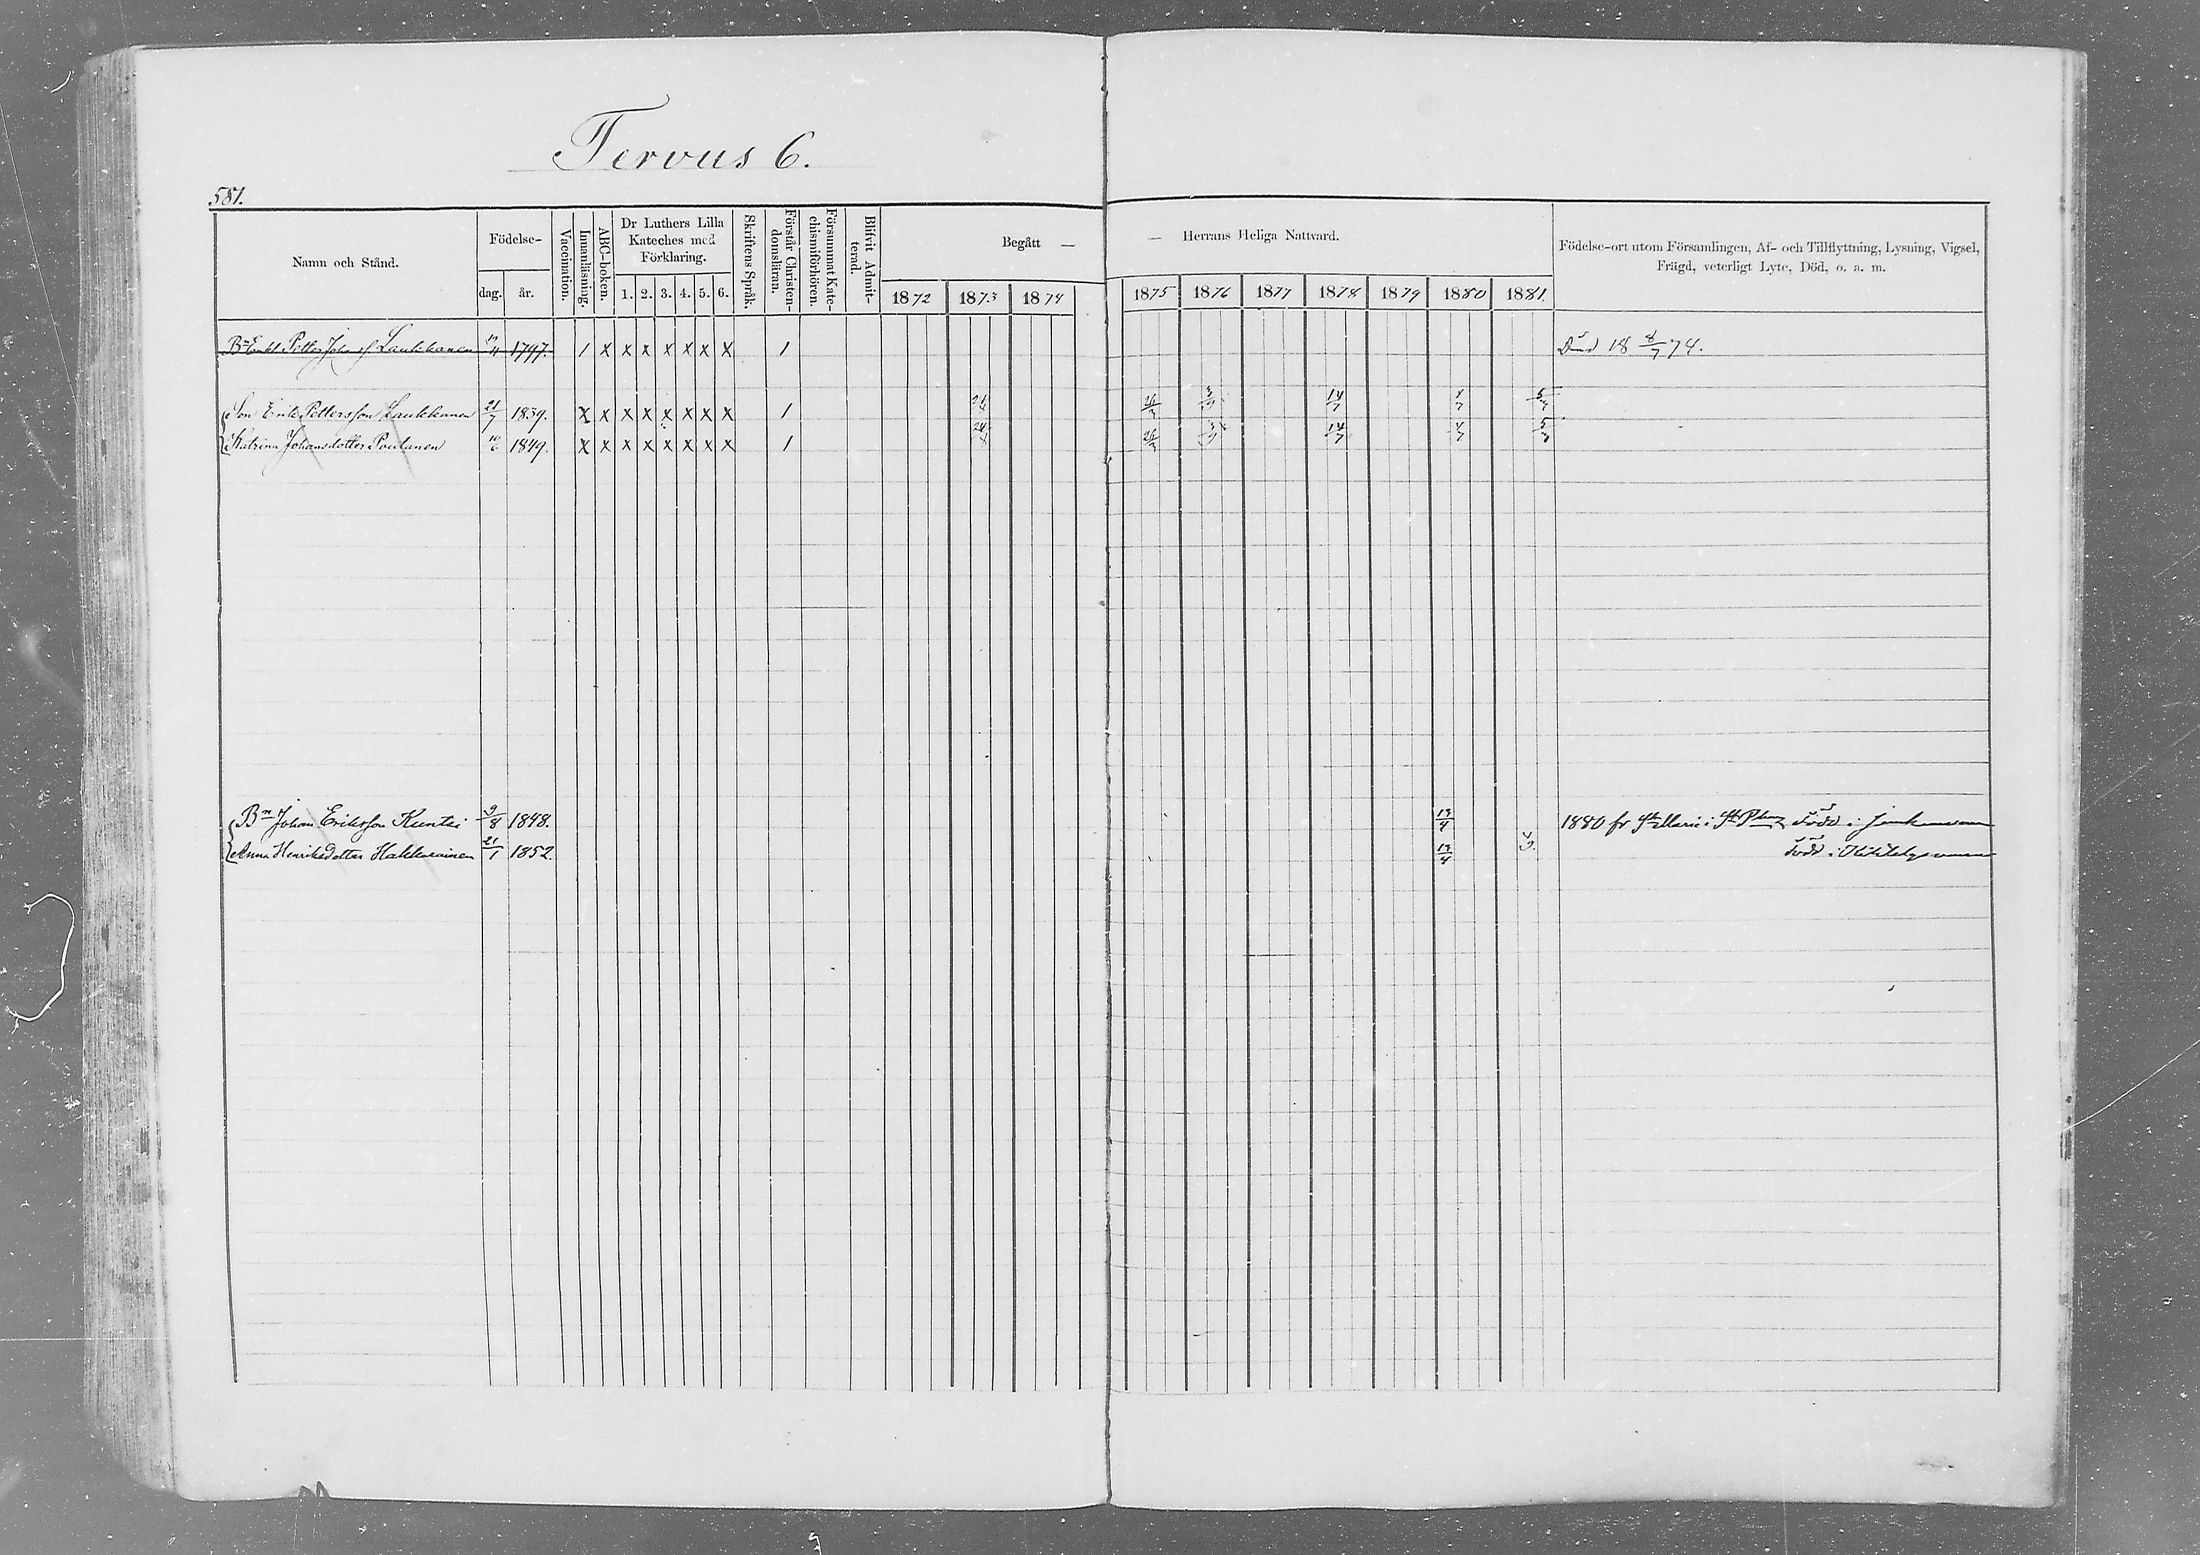 Tervus 6.
581.
Namn och Stånd.
Födelse-
dag. år.
Vaccination.
Innanläsning.
ABC-boken.
Dr Luthers Lilla
Kateches med
Förklaring.
1. 2. 3. 4. 5. 6.
Skriftens Språk.
Förstår Christen-
domsläran.
Försummat Kate-
chismiförhören.
Blifvit Admit-
terad.
Begått —
— Herrans Heliga Nattvard.
1872 1873 1874 1875 1876 1877 1878 1879 1880 1881.
Födelse-ort utom Församlingen, Af- och Tillflyttning, Lysning, Vigsel,
Frägd, veterligt Lyte, Död, o. a. m.
Bn Enkl. Petter Laukkanen 1797. 1 x x x x x x x 1 Död 18 8/7 74.
Son Erik Pettersson Laukkanen 21/7 1839. x x x x x x x x 1 14/7 4/7 5/7
Katrina Johansdotter Poutanen 1849. x x x x x x x x 1 14/7 4/7 5/7
Bn Johan Eriksson Kuntsi 9/8 1848. 13/4 1880 fr St Marie i St Pburg Född i
Anna Henriksdotter Hakkarainen 21/1 1852. 13/4 4/9. Född i